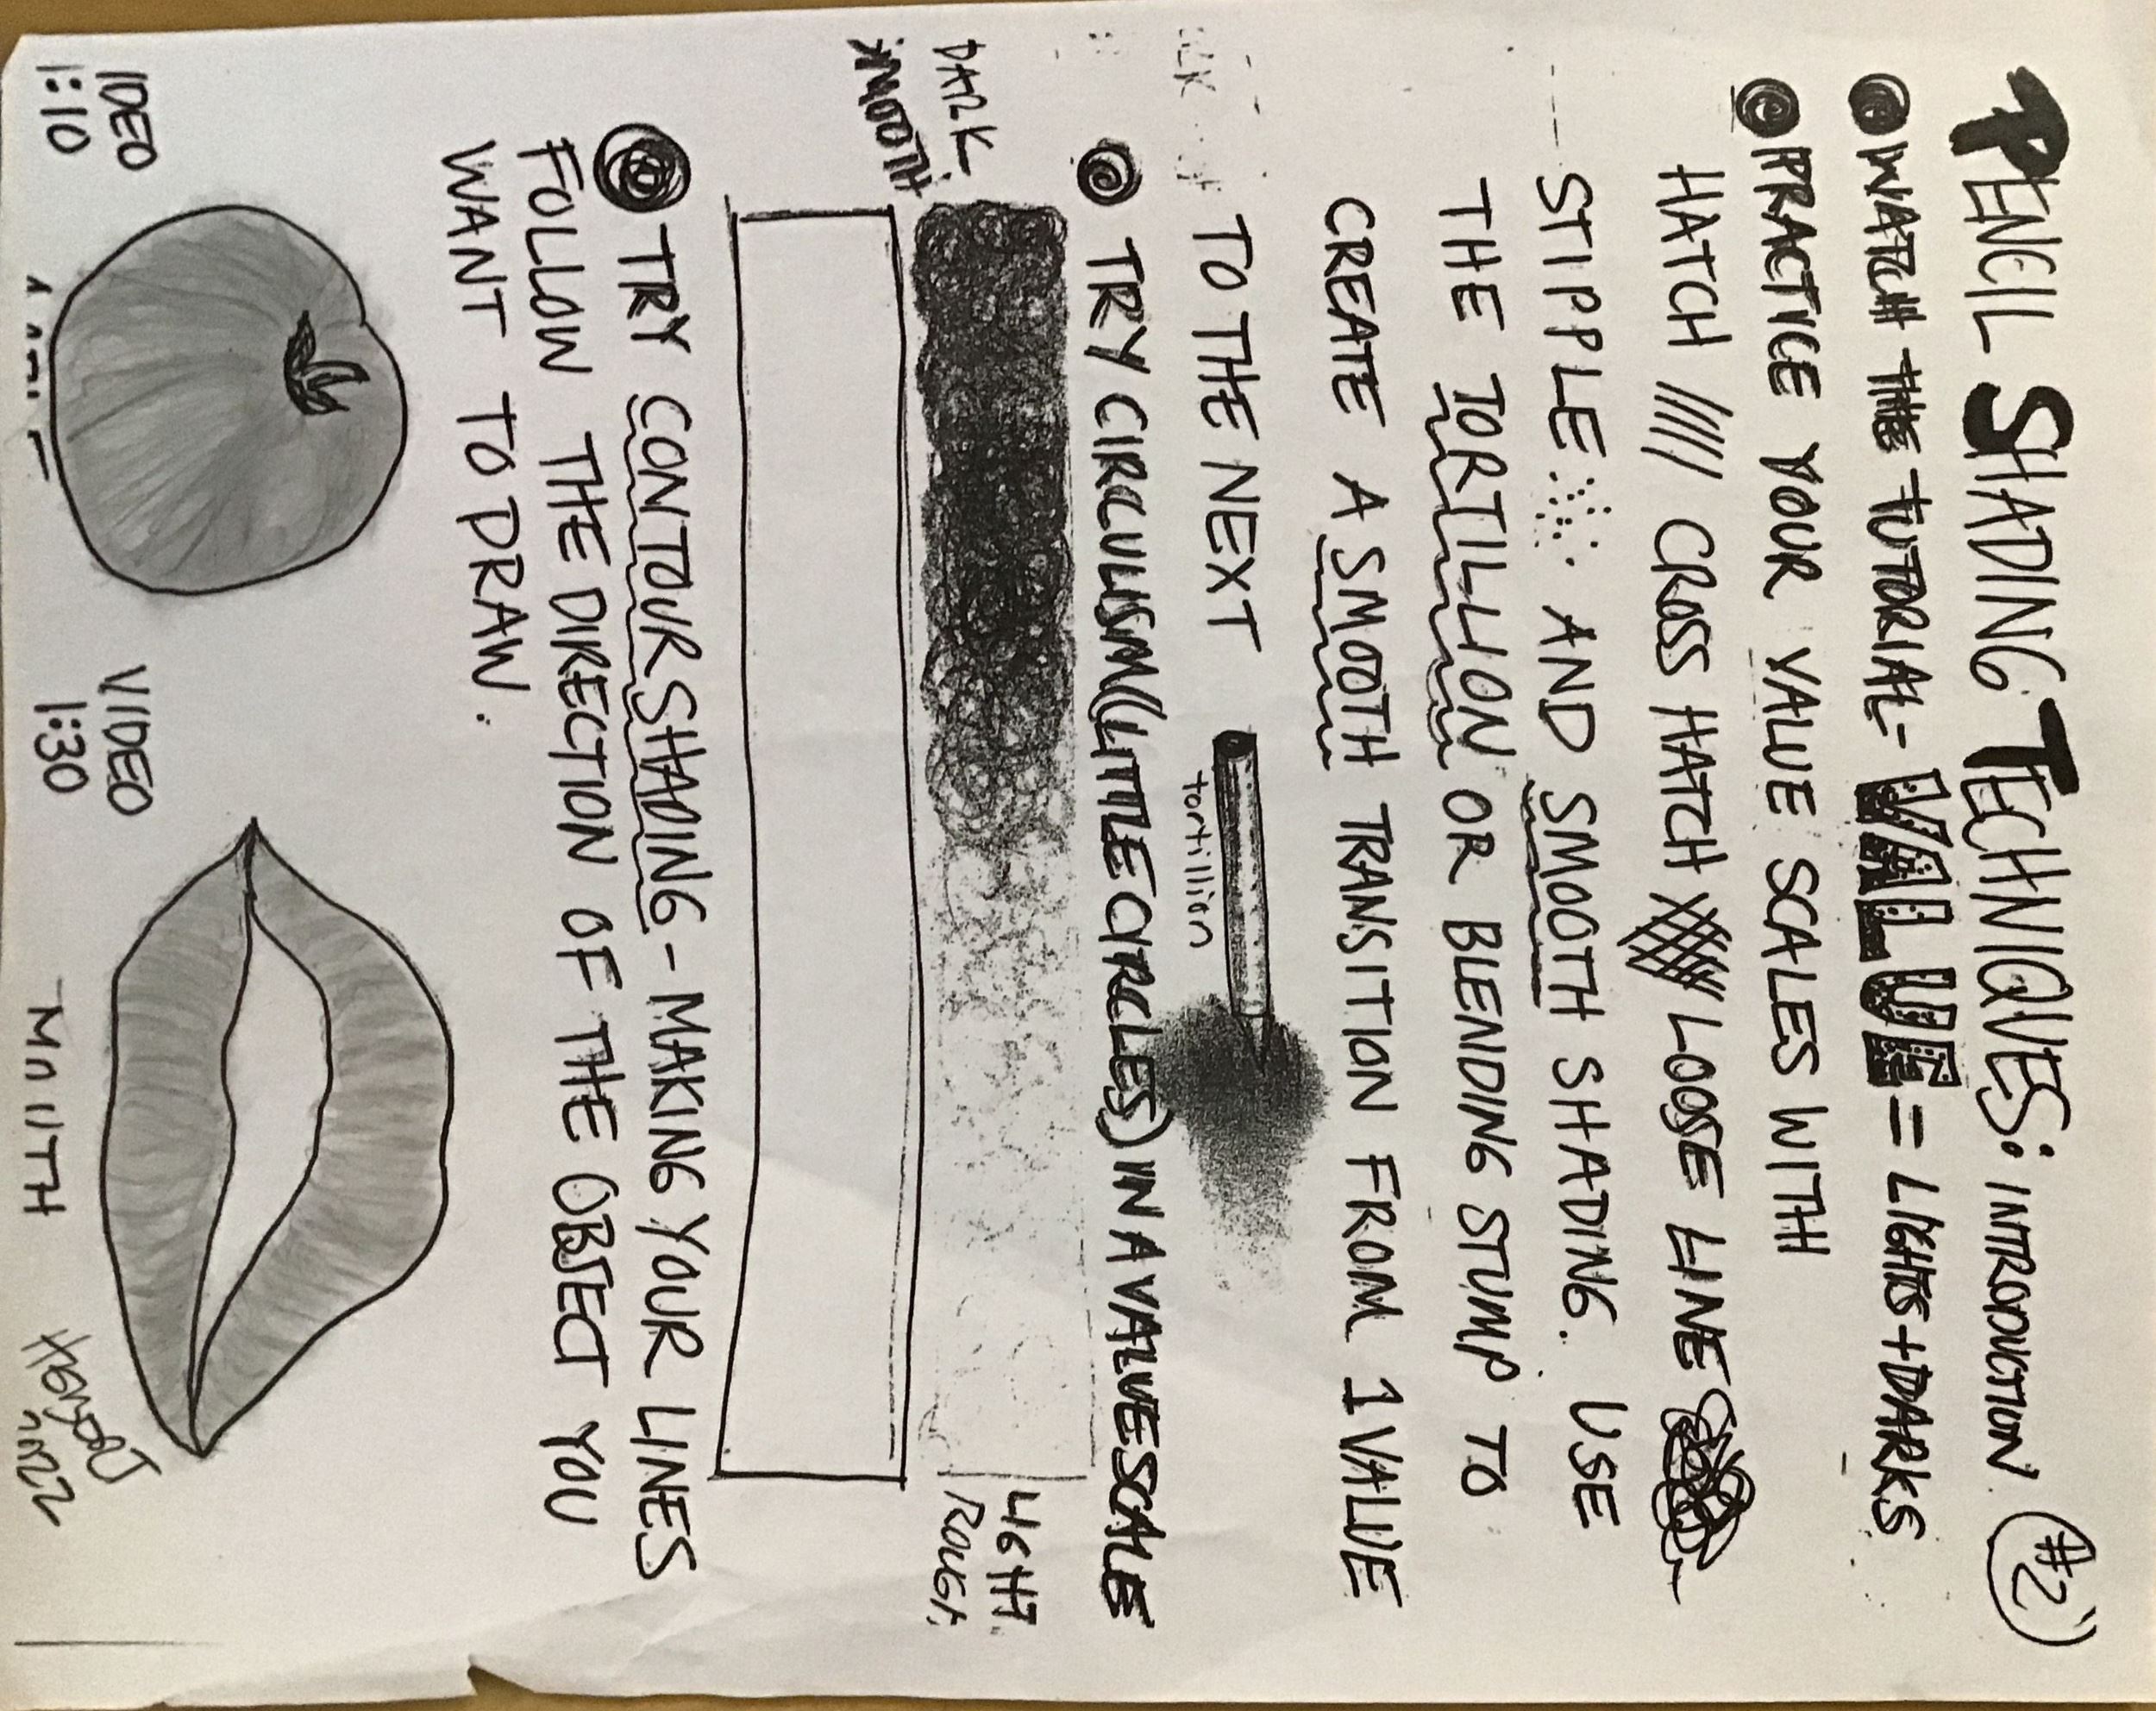 PENCIL SHADING TECHNIQUES: INTRODUCTION #2
WATCH THE TUTORIAL- VALUE = LIGHTS + DARKS
PRACTICE YOUR VALUE SCALES WITH
HATCH ///// CROSS HATCH LOOSE LINE
STIPPLE AND SMOOTH SHADING. USE
THE TORTILLION OR BLENDING STUMP TO
CREATE A SMOOTH TRANSITION FROM 1 VALUE
TO THE NEXT
tortillion
TRY CIRCULISM (LITTLE CIRCLES) IN A VALUE SCALE
DARK
SMOOTH
LIGHT
ROUGH
TRY CONTOUR SHADING - MAKING YOUR LINES
FOLLOW THE DIRECTION OF THE OBJECT YOU
WANT TO DRAW.
IDEO
1:10
VIDEO
1:30
MOUTH